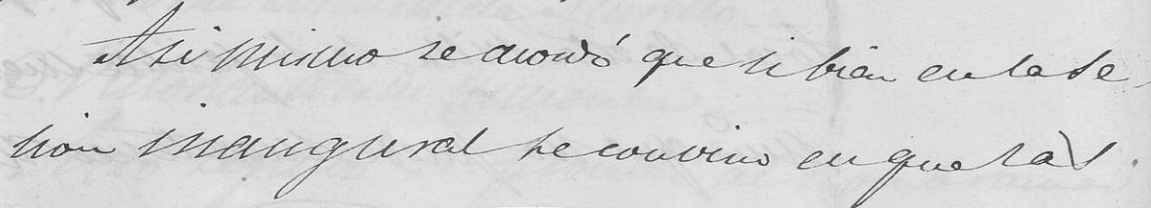 Asi mismo se acordó que si bien en la se-
sion inaugural se convino en que las